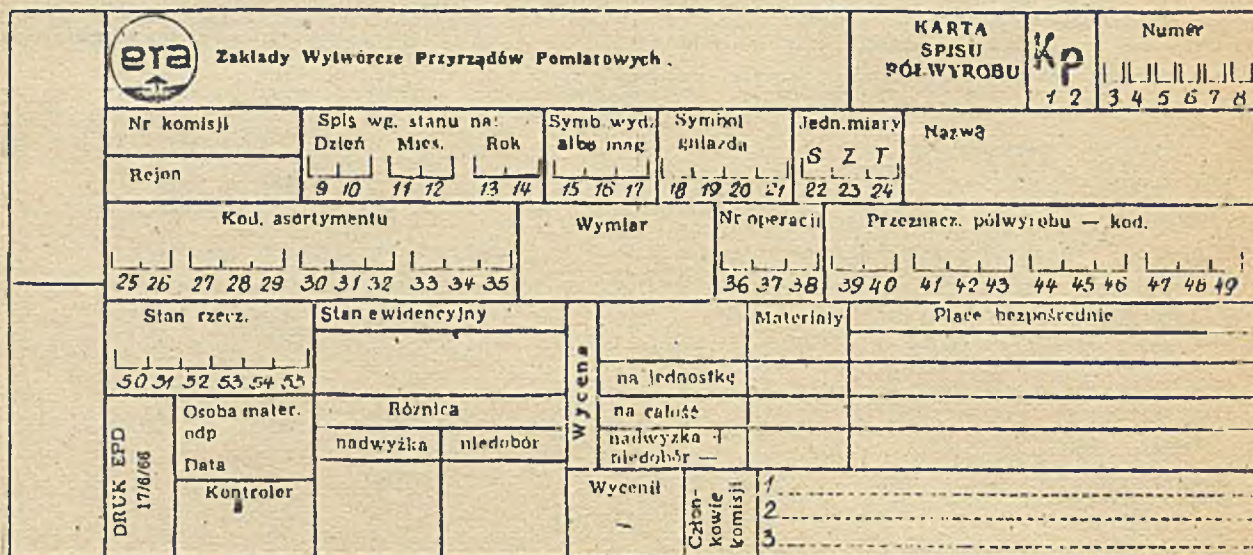 era
Zakłady Wytwórcze Przyrządów Pomiarowych.
KARTA
SPISU
PÓŁWYROBU
Kp
1 2
Numer
3 4 5 6 7 8
Nr komisji
Rejon
Spis wg. stanu na:
Dzień Mies. Rok
9 10 11 12 13 14
Symb. wyd.
albo mag
15 16 17
Symbol
gniazda
18 19 20 21
Jedn. miary
S Z T
22 23 24
Nazwa
Kod. asortymentu
25 26 27 28 29 30 31 32 33 34 35
Wymiar
Nr operacji
36 37 38
Przeznacz. półwyrobu — kod.
39 40 41 42 43 44 45 46 47 48 49
Stan rzecz.
50 51 52 53 54 55
Stan ewidencyjny
Wycena
Materiały
Płace bezpośrednie
na jednostkę
na całość
nadwyżka +
niedobór —
DRUK EPD
17/6/66
Osoba mater.
odp
Data
Kontroler
Różnica
nadwyżka niedobór
Wycenił
Człon-
kowie
komisji
1
2
3